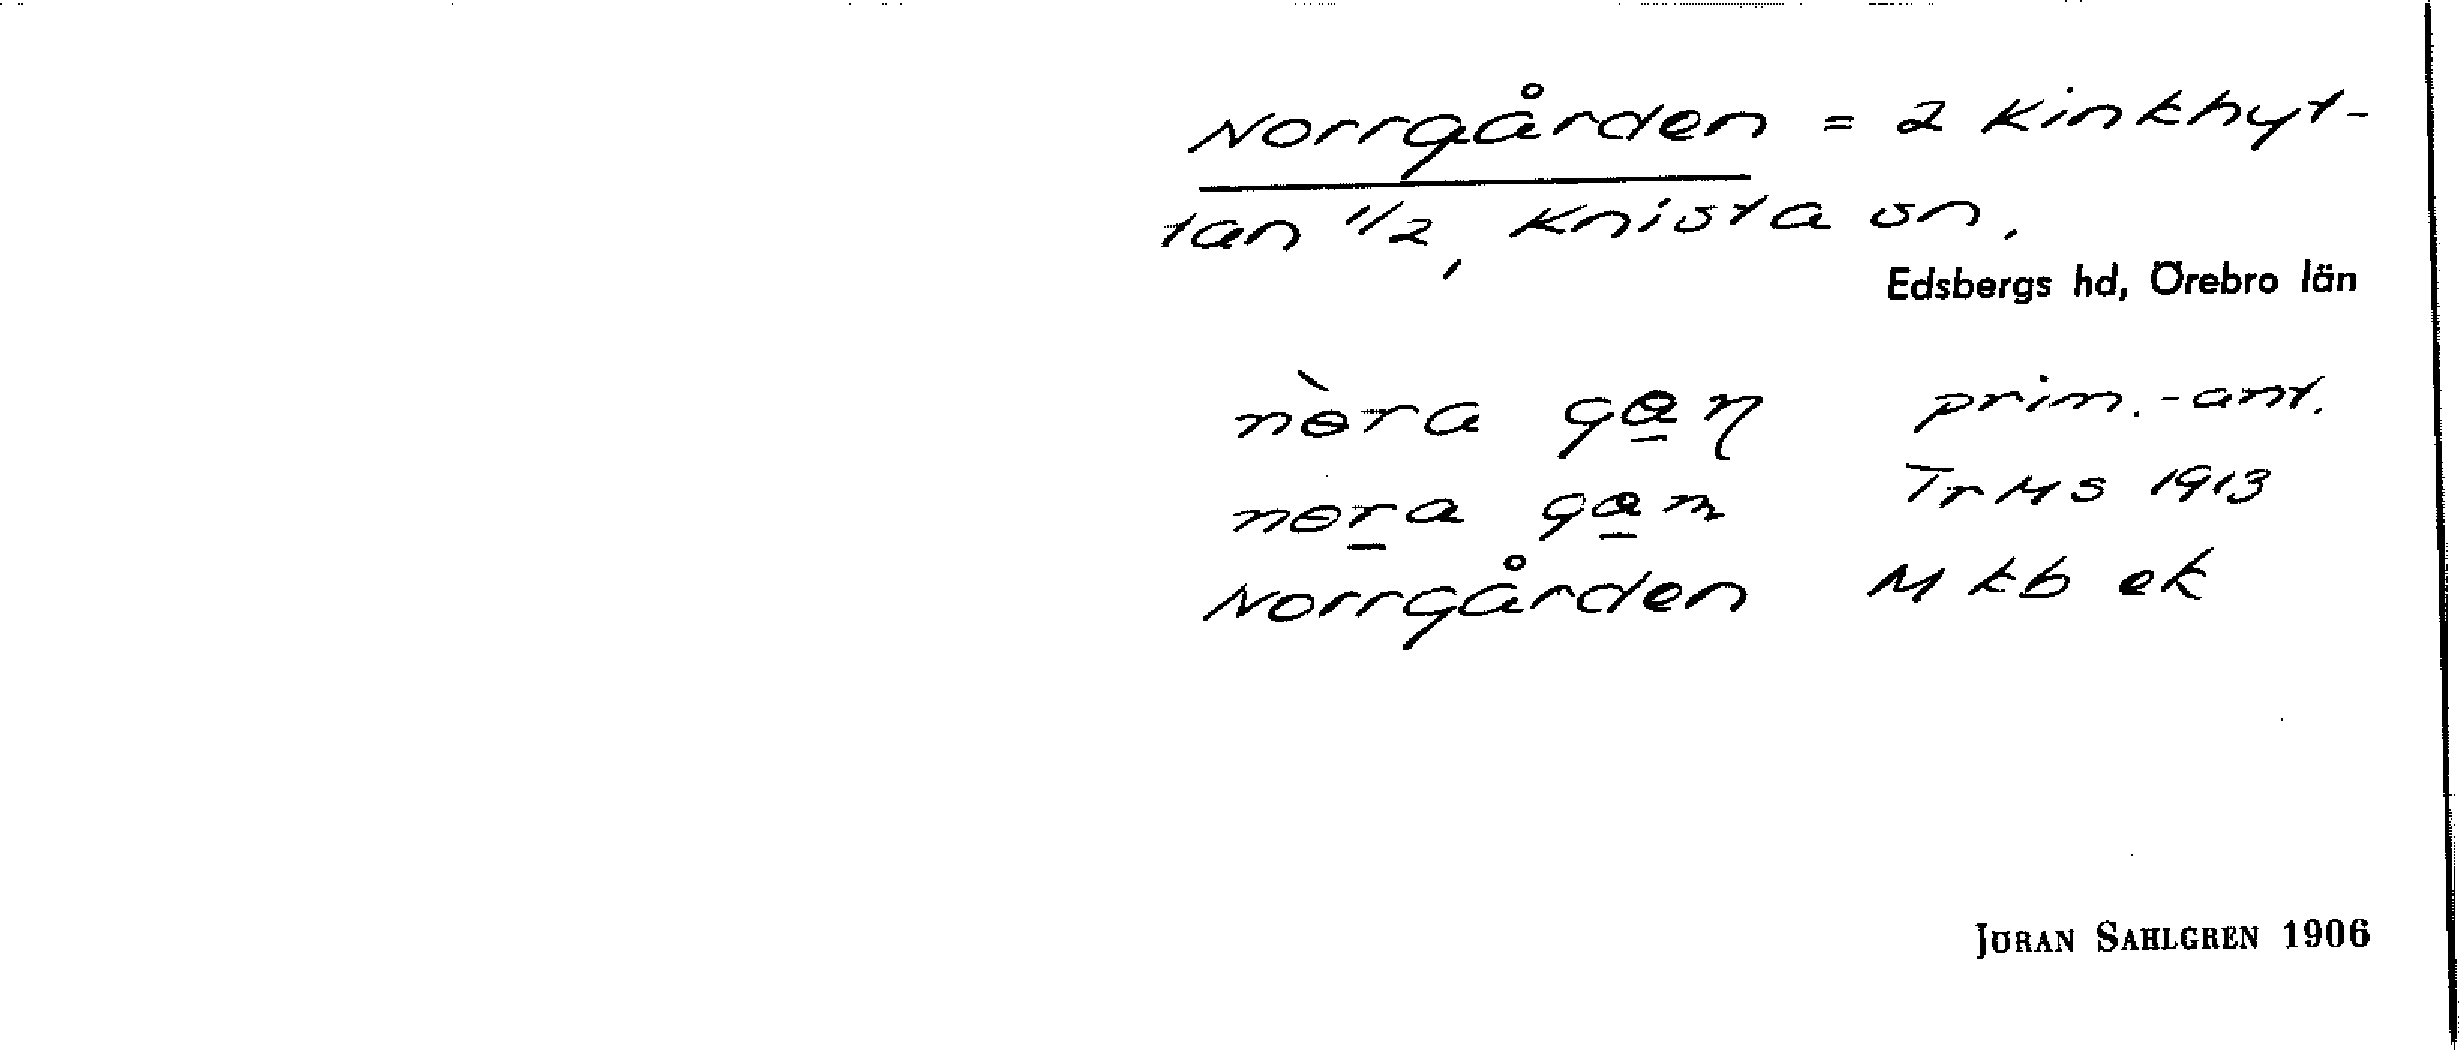 Norrgården = 2 Kinkhyt-
tan 1/2, Knista sn,
Edsbergs hd, Örebro län
nèra ga̲ɳ prim.-ant.
nɵr̲a ga̲n TrMS 1913
Norrgården M kb ek
JÖRAN SAHLGREN 1906